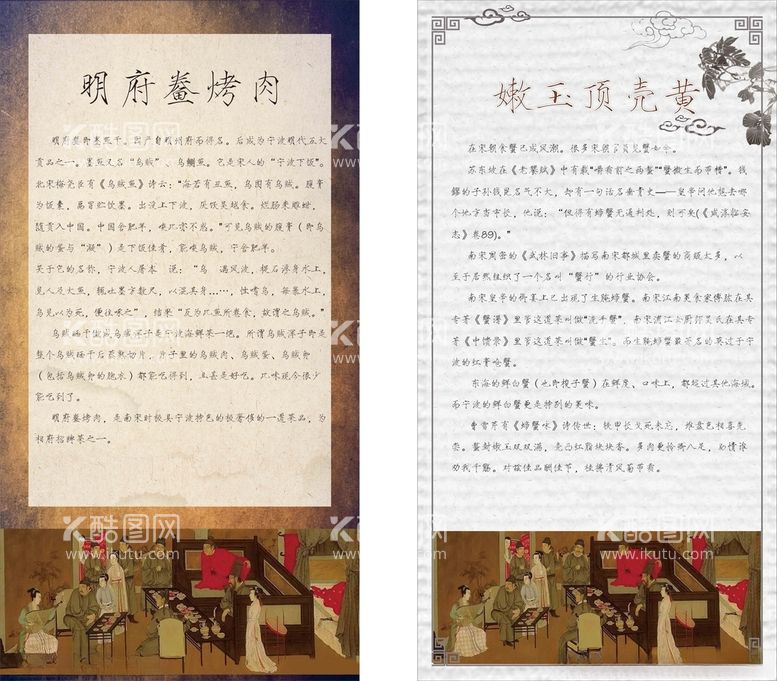 明府鲞烤肉
明府鲞即墨鱼干。因产自明州府而得名。后成为宁波明代五大
贡品之一。墨鱼又名“乌贼”、乌鲗鱼。它是宋人的“宁波下饭”。
北宋梅尧臣有《乌贼鱼》诗云：“海若有丑鱼，乌图有乌贼。腹膏
为饭囊，鬲冒贮饮墨。出没上下波，厌饫吴越食。烂肠来雕蚶，
随贡入中国。中国舍肥羊，啖此亦不惑。”可见乌贼的腹膏（即乌
贼的蛋与“凝”）是下饭佳肴，能啖乌贼，宁舍肥羊。
关于它的名称，宁波人屠本 说：“乌 遇风波，
见人及大鱼，辄吐墨方数尺，以混其身……，性嗜乌，每暴水上，
乌见以为死，便往啄之”，结果“反为此鱼所卷食，故谓之乌贼。”
乌贼
整个乌贼干后蒸熟切片，片子里的乌贼肉、乌贼蛋、乌贼卵
（包括乌贼卵的胞衣）都能吃得到，且甚是好吃。此味现今很少
能吃到了。
明府鲞烤肉，是南宋时极具宁波特色的极奢侈的一道菜品，为
相府招牌菜之一。
嫩玉顶壳黄
在宋朝食蟹已成风潮。很多宋朝官员见蟹
苏东坡在《老饕赋》中有载“嚼霜前之两螯”“蟹微生而带糟”。钱
镠的子孙钱昆名气不大，却有一句话名垂青史——皇帝问他想去哪
个地方当市长，他说：“但得有螃蟹无通判处，则可矣(《咸淳临安
志》卷89)。”
南宋周密的《武林旧事》描写南宋都城里卖蟹的商贩太多，以
至于居然组织了一个名叫“蟹行”的行业协会。
南宋皇帝的御宴上已出现了生腌螃蟹。南宋江南美食家傅肱在其
专著《蟹谱》里管这道菜叫做“洗手蟹”，南宋浦江女厨师吴氏在其专
著《中馈录》里管这道菜叫做“蟹生”。而生腌螃蟹最著名的莫过于宁
波的红膏呛蟹。
东海的鲜白蟹（也即梭子蟹）在鲜度、口味上，都超过其他海域。
而宁波的鲜白蟹更是特别的美味。
曹雪芹有《螃蟹咏》诗传世：铁甲长戈死未忘，堆盘色相喜先
尝。螯封嫩玉双双满，壳凸红脂块块香。多肉更怜卿八足，助情谁
劝我千觞。对兹佳品酬佳节，桂拂清风菊带霜。
酷图网
www.ikutu.com